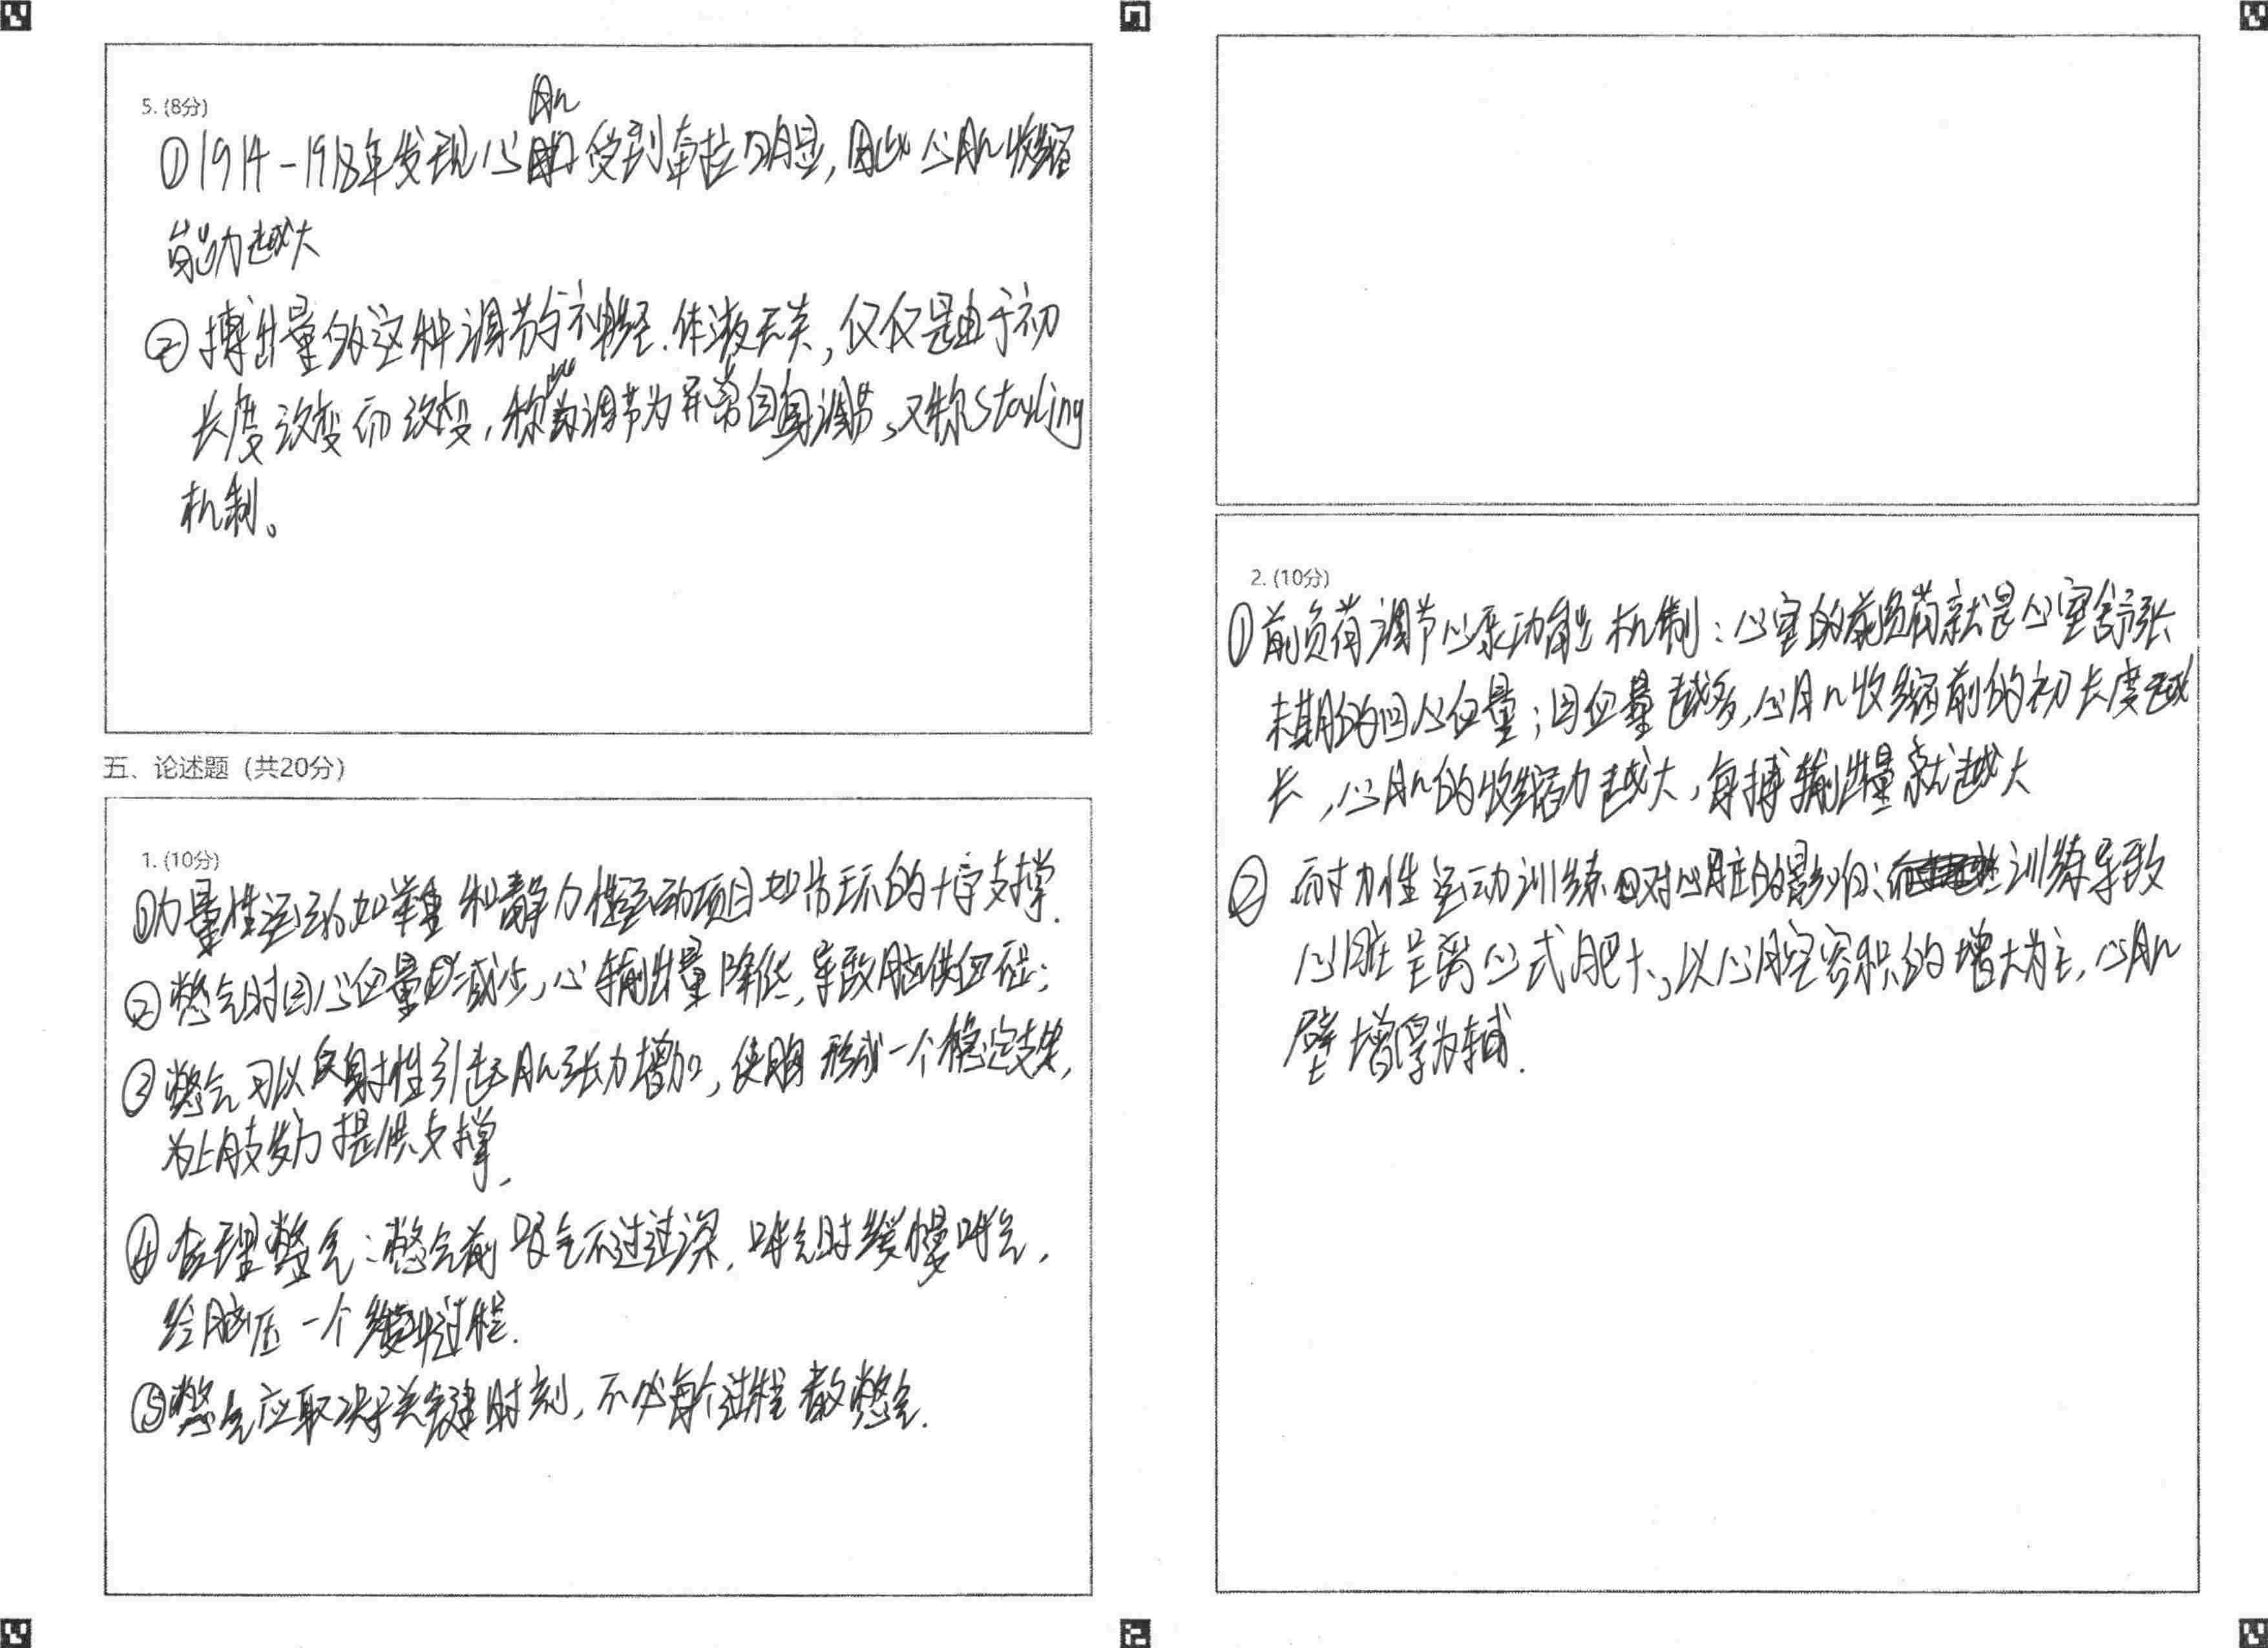 5. (8分)
①1914-1918年发现心肌受到牵拉明显,因此心肌收缩
能力越大
②搏出量的这种调节与神经.体液无关,仅仅是由于初
长度改变而改变,称调节为异常自身调节,又称Starling
机制。
五、论述题(共20分)
1. (10分)
①力量性运动如举重和静力性运动项目如吊环的十字支撑.
②憋气时回心血量减少,心输出量降低,导致脑供血不足;
③憋气可以反射性引起肌张力增加,使胸形成一个稳定支架,
为上肢发力提供支撑.
④合理憋气:憋气前吸气不过过深.呼气时缓慢呼气,
给脑压一个缓冲过程.
⑤憋气应取决于关键时刻,不必每个过程都憋气.
2. (10分)
①前负荷调节心泵功能机制:心室的前负荷就是心室舒张
末期的回心血量;回血量越多,心肌收缩前的初长度越
长,心肌的收缩力越大,每搏输出量就越大
② 耐力性运动训练对心脏的影响:训练导致
心脏呈离心式肥大,以心腔容积的增大为主,心肌
壁增厚为辅.